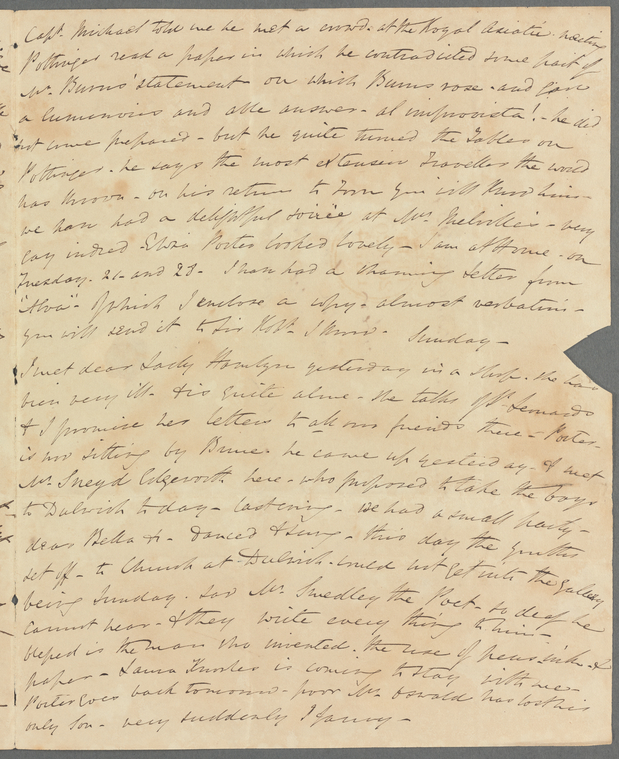 Capt. Michael told me he met a crowd at the Royal Asiatic meeting
Pottinger read a paper in which he contradicted some part of
Mr. Burns' statement on which Burns rose - and gave
a luminous and able answer - al improvista! - he did
not come prepared - but he quite turned the Tables on
Pottinger - he says the most extensive Traveller the world
has known - on his return to Town you will know him -
we have had a delightful soirée at Mrs. Melville's - very
gay indeed - Eliza Porter looked lovely - I am at Home - on
Tuesday - 21 and 28 - I have had a charming letter from
"Alva" - of which I enclose a copy - almost verbatim -
you will send it to Sir Robt. I know - Sunday -
I met dear Lady Hamlyn yesterday in a shop - she has
been very ill - & is quite alone - she talks of St. Leonards
& I promise her letters to all our friends there - Porter -
is now sitting by Bruce - he came up yesterday - & met
Mr. Sneyd Edgeworth here - who proposed to take the boys
to Dulwich to day - we had a small party -
dear Bella & - danced & sung - this day the youths
set off - to Church at Dulwich - could not get into the Gallery
being Sunday - saw Mr. Smedley the Poet - so deaf he
cannot hear - & they write every thing to him -
blessed is the man who invented the use of pens ink - &
paper - Laura is coming to stay with me -
Porter goes back tomorrow - poor Mr. Oswald has lost his
only Son - very suddenly I fancy -